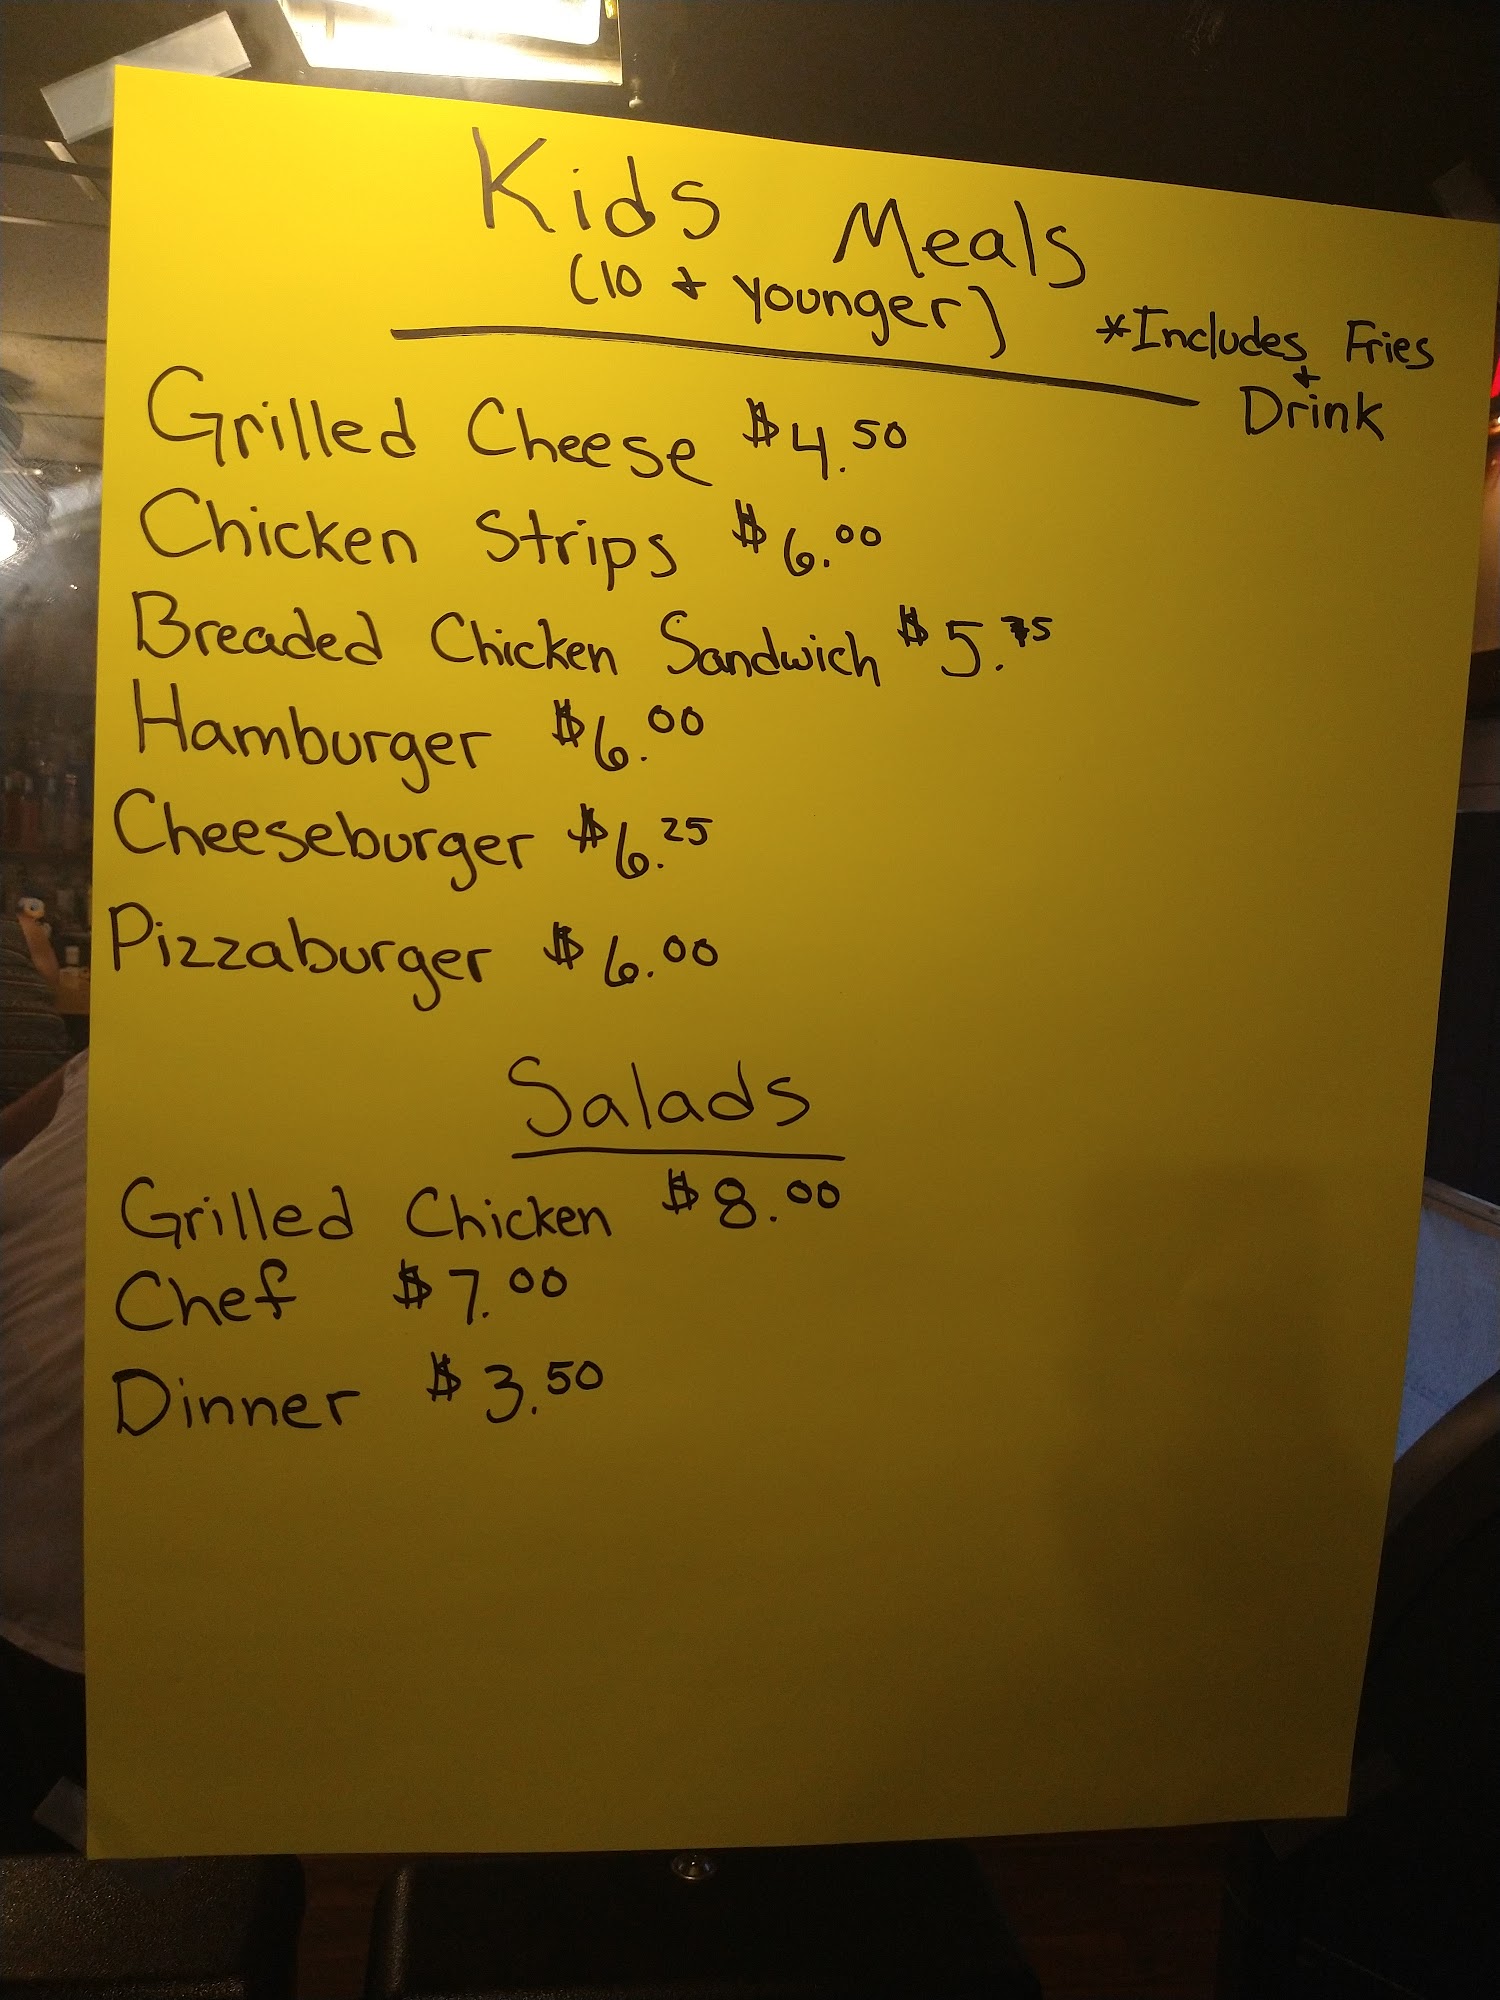 Kids Meals
(10 + younger)
*Includes Fries
+
Drink
Grilled Cheese $4.50
Chicken Strips $6.00
Breaded Chicken Sandwich $5.75
Hamburger $6.00
Cheeseburger $6.25
Pizzaburger $6.00
Salads
Grilled Chicken $8.00
Chef $7.00
Dinner $3.50